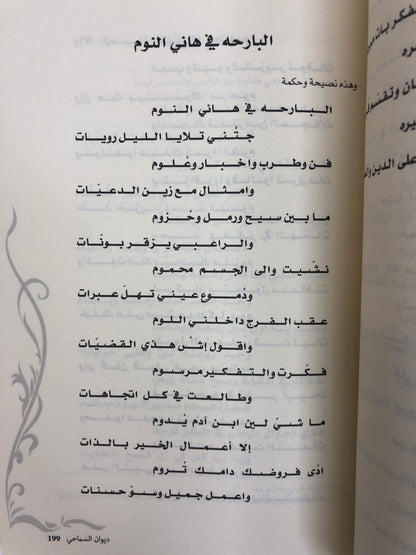 البارحه في هاني النوم
وهذه نصيحة وحكمة
البارحه في هاني النوم
جتني تلايا الليل رويات
فن وطرب واخبار وعلوم
وامثال مع زين الدعيات
ما بين سيح ورمل وحزوم
والراعبي يزقر بونات
نشيت والى الجسم محموم
ودموع عيني تهل عبرات
عقب الفرج داخلني اللوم
واقول إش هذي القضيات
فكرت والتفكير مرسوم
وطالعت في كل اتجاهات
ما شي لين ابن آدم يدوم
إلا أعمال الخير بالذات
ادى فروضك دامك تروم
واعمل جميل وسو حسنات
ديوان السماحي 199
على الدين